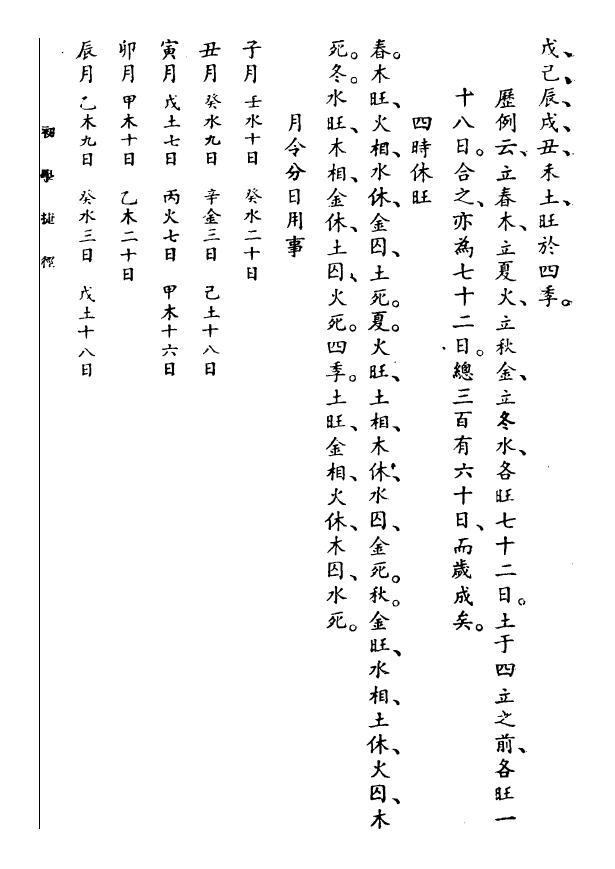 戊、己、辰、戌、丑、未土、旺於四季。
歷例云、立春木、立夏火、立秋金、立冬水、各旺七十二日。土于四立之前、各旺一
十八日。合之、亦為七十二日。總三百有六十日、而歲成矣。
四時休旺
春。木旺、火相、水休、金囚、土死。夏。火旺、土相、木休、水囚、金死。秋。金旺、水相、土休、火囚、木
死。冬。水旺、木相、金休、土囚、火死。四季。土旺、金相、火休、木囚、水死。
月令分日用事
子月 壬水十日 癸水二十日
丑月 癸水九日 辛金三日 己土十八日
寅月 戊土七日 丙火七日 甲木十六日
卯月 甲木十日 乙木二十日
辰月 乙木九日 癸水三日 戊土十八日
初學捷徑